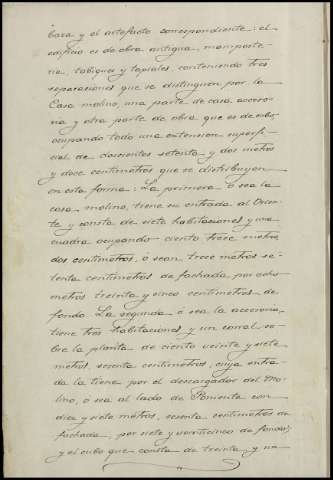 baza y el artefacto correspondiente: el
edificio es de obra antigua, mamposte-
ria, tabiques y tapiales, conteniendo tres
separaciones que se distinguen por la
Casa molino, una parte de casa acceso-
ria y otra parte de obra que es de cubo,
ocupando todo una extension superfi-
cial de doscientos setenta y dos metros
y doce centimetros que se distribuyen
en esta forma: La primera ó sea la
casa molino, tiene su entrada al Orien-
te y consta de siete habitaciones y una
cuadra ocupando ciento trece metros
dos centimetros, ó sean trece metros se-
tenta centimetros de fachada por ocho
metros treinta y cinco centimetros de
fondo. La segunda ó sea la accesoria,
tiene tres habitaciones y un corral so-
bre la planta de ciento veinte y siete
metros, sesenta centimetros, cuya entra-
da la tiene por el descargador del Mo-
lino, ó sea al lado de Poniente con
diez y siete metros, sesenta centimetros de
fachada, por siete y veinticinco de fondo;
y el cubo que consta de treinta y un